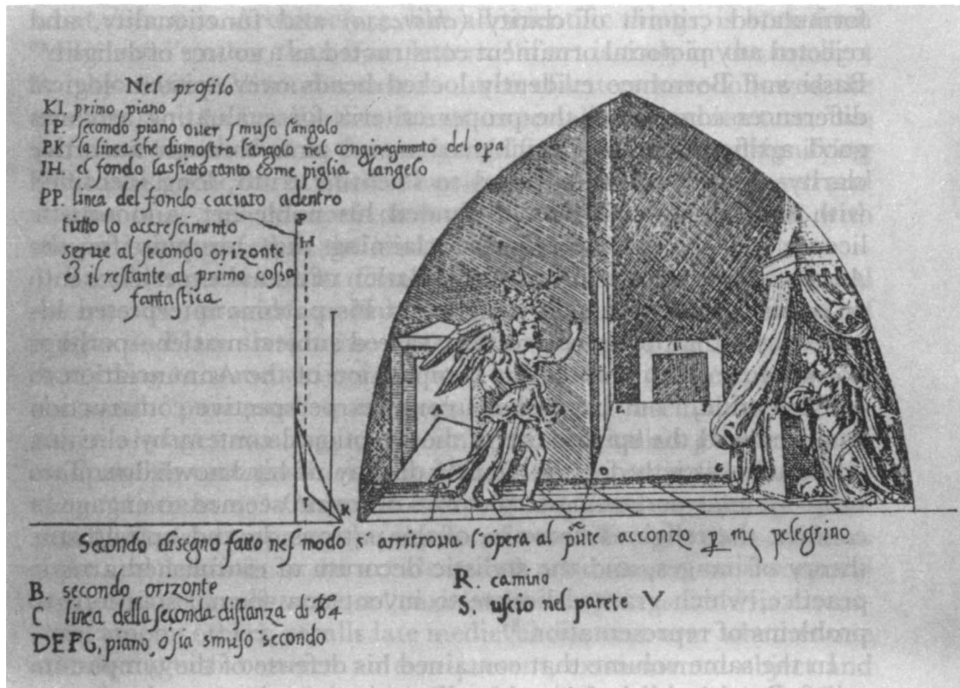 Nel profilo
KI. primo, piano
IP. secondo piano ouer smuso langolo
P.K la linea che dimostra langolo nel congiungimento del opa
IH. el fondo lasſiato tanto come piglia langelo
PP. linea del fondo caciato adentro
tutto lo accrescimento
serue al secondo orizonte
& il restante al primo cossa
fantastica
P
H
I
K
Secondo disegno fatto nel modo si arritroua l'opera al pñte acconzo mr pelegrino
B. secondo orizonte
C linea della seconda distanza di 4
DEFG, piano, o sia smuso secondo
R. camino
S. uscio nel parete V